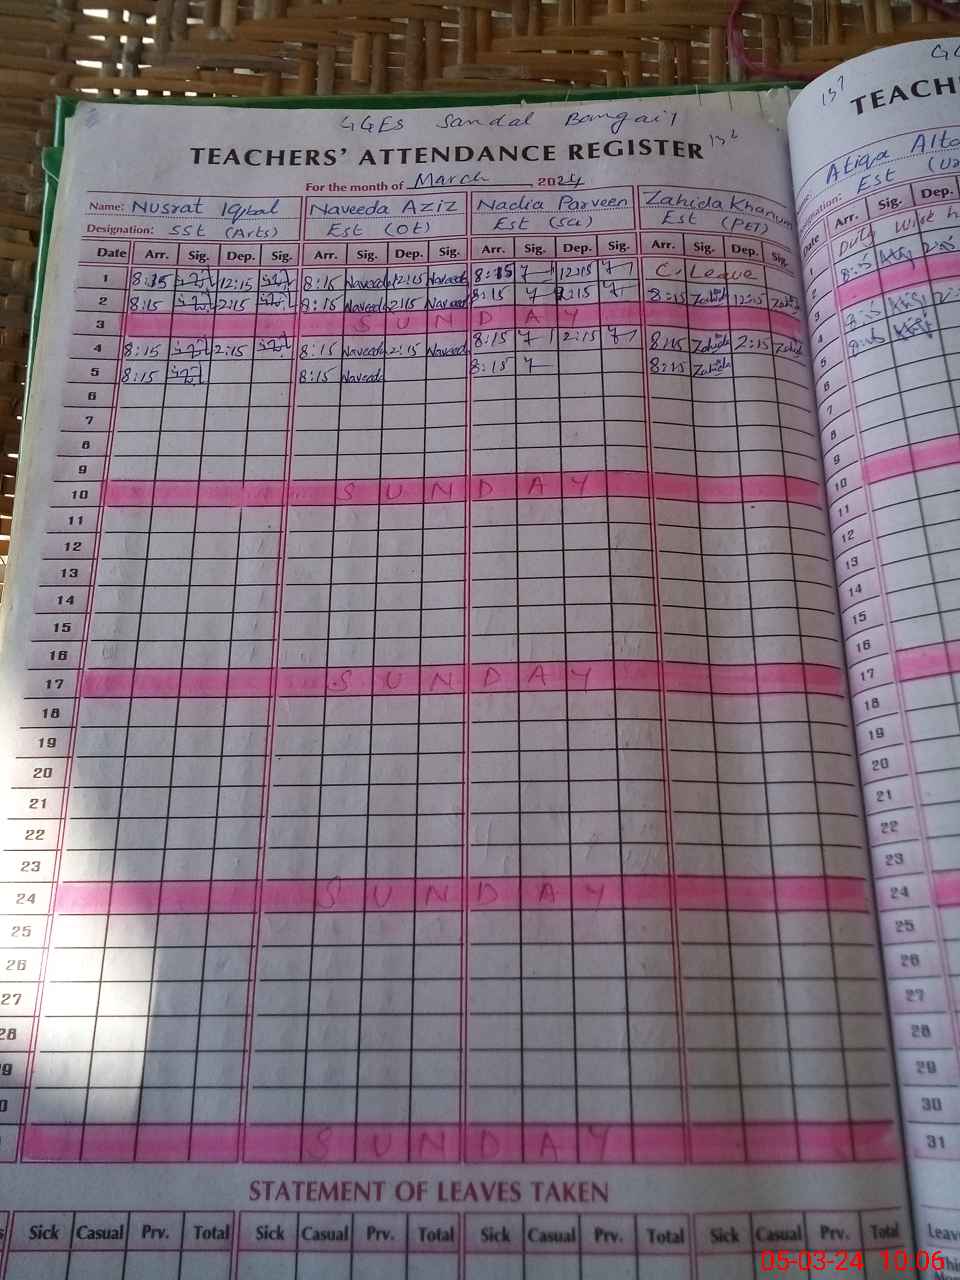 GGES Sandal Bamgail
TEACHERS' ATTENDANCE REGISTER 132
For the month of March 2024
Name: Nusrat Iqbal Naveeda Aziz Nadia Parveen Zahida Khanum
Designation: SSt (Arts) Est (Ot) Est (Sci) Est (PET)
Date Arr. Sig. Dep. Sig. Arr. Sig. Dep. Sig. Arr. Sig. Dep. Sig. Arr. Sig. Dep. Sig.
1 8:15 12:15 8:15 Naveeda 12:15 Naveeda 8:15 12:15 C. Leave
2 8:15 2:15 8:15 Naveeda 2:15 Naveeda 8:15 2:15 8:15 Zahida 12:15 Zahida
3 SUNDAY
4 8:15 2:15 8:15 Naveeda 2:15 Naveeda 8:15 2:15 8:15 Zahida 2:15 Zahida
5 8:15 8:15 Naveeda 8:15 8:15 Zahida
6
7
8
9
10 SUNDAY
11
12
13
14
15
16
17 SUNDAY
18
19
20
21
22
23
24 SUNDAY
25
26
27
28
9
0
SUNDAY
STATEMENT OF LEAVES TAKEN
Sick Casual Prv. Total Sick Casual Prv. Total Sick Casual Prv. Total Sick Casual Prv. Total
131
TEACH
Atiqa Alta
Est
Date Arr. Sig. Dep.
1
2
3
4
5
6
7
8
9
10
11
12
13
14
15
16
17
18
19
20
21
22
23
24
25
26
27
28
29
30
31
Leave
05-03-24 10:06